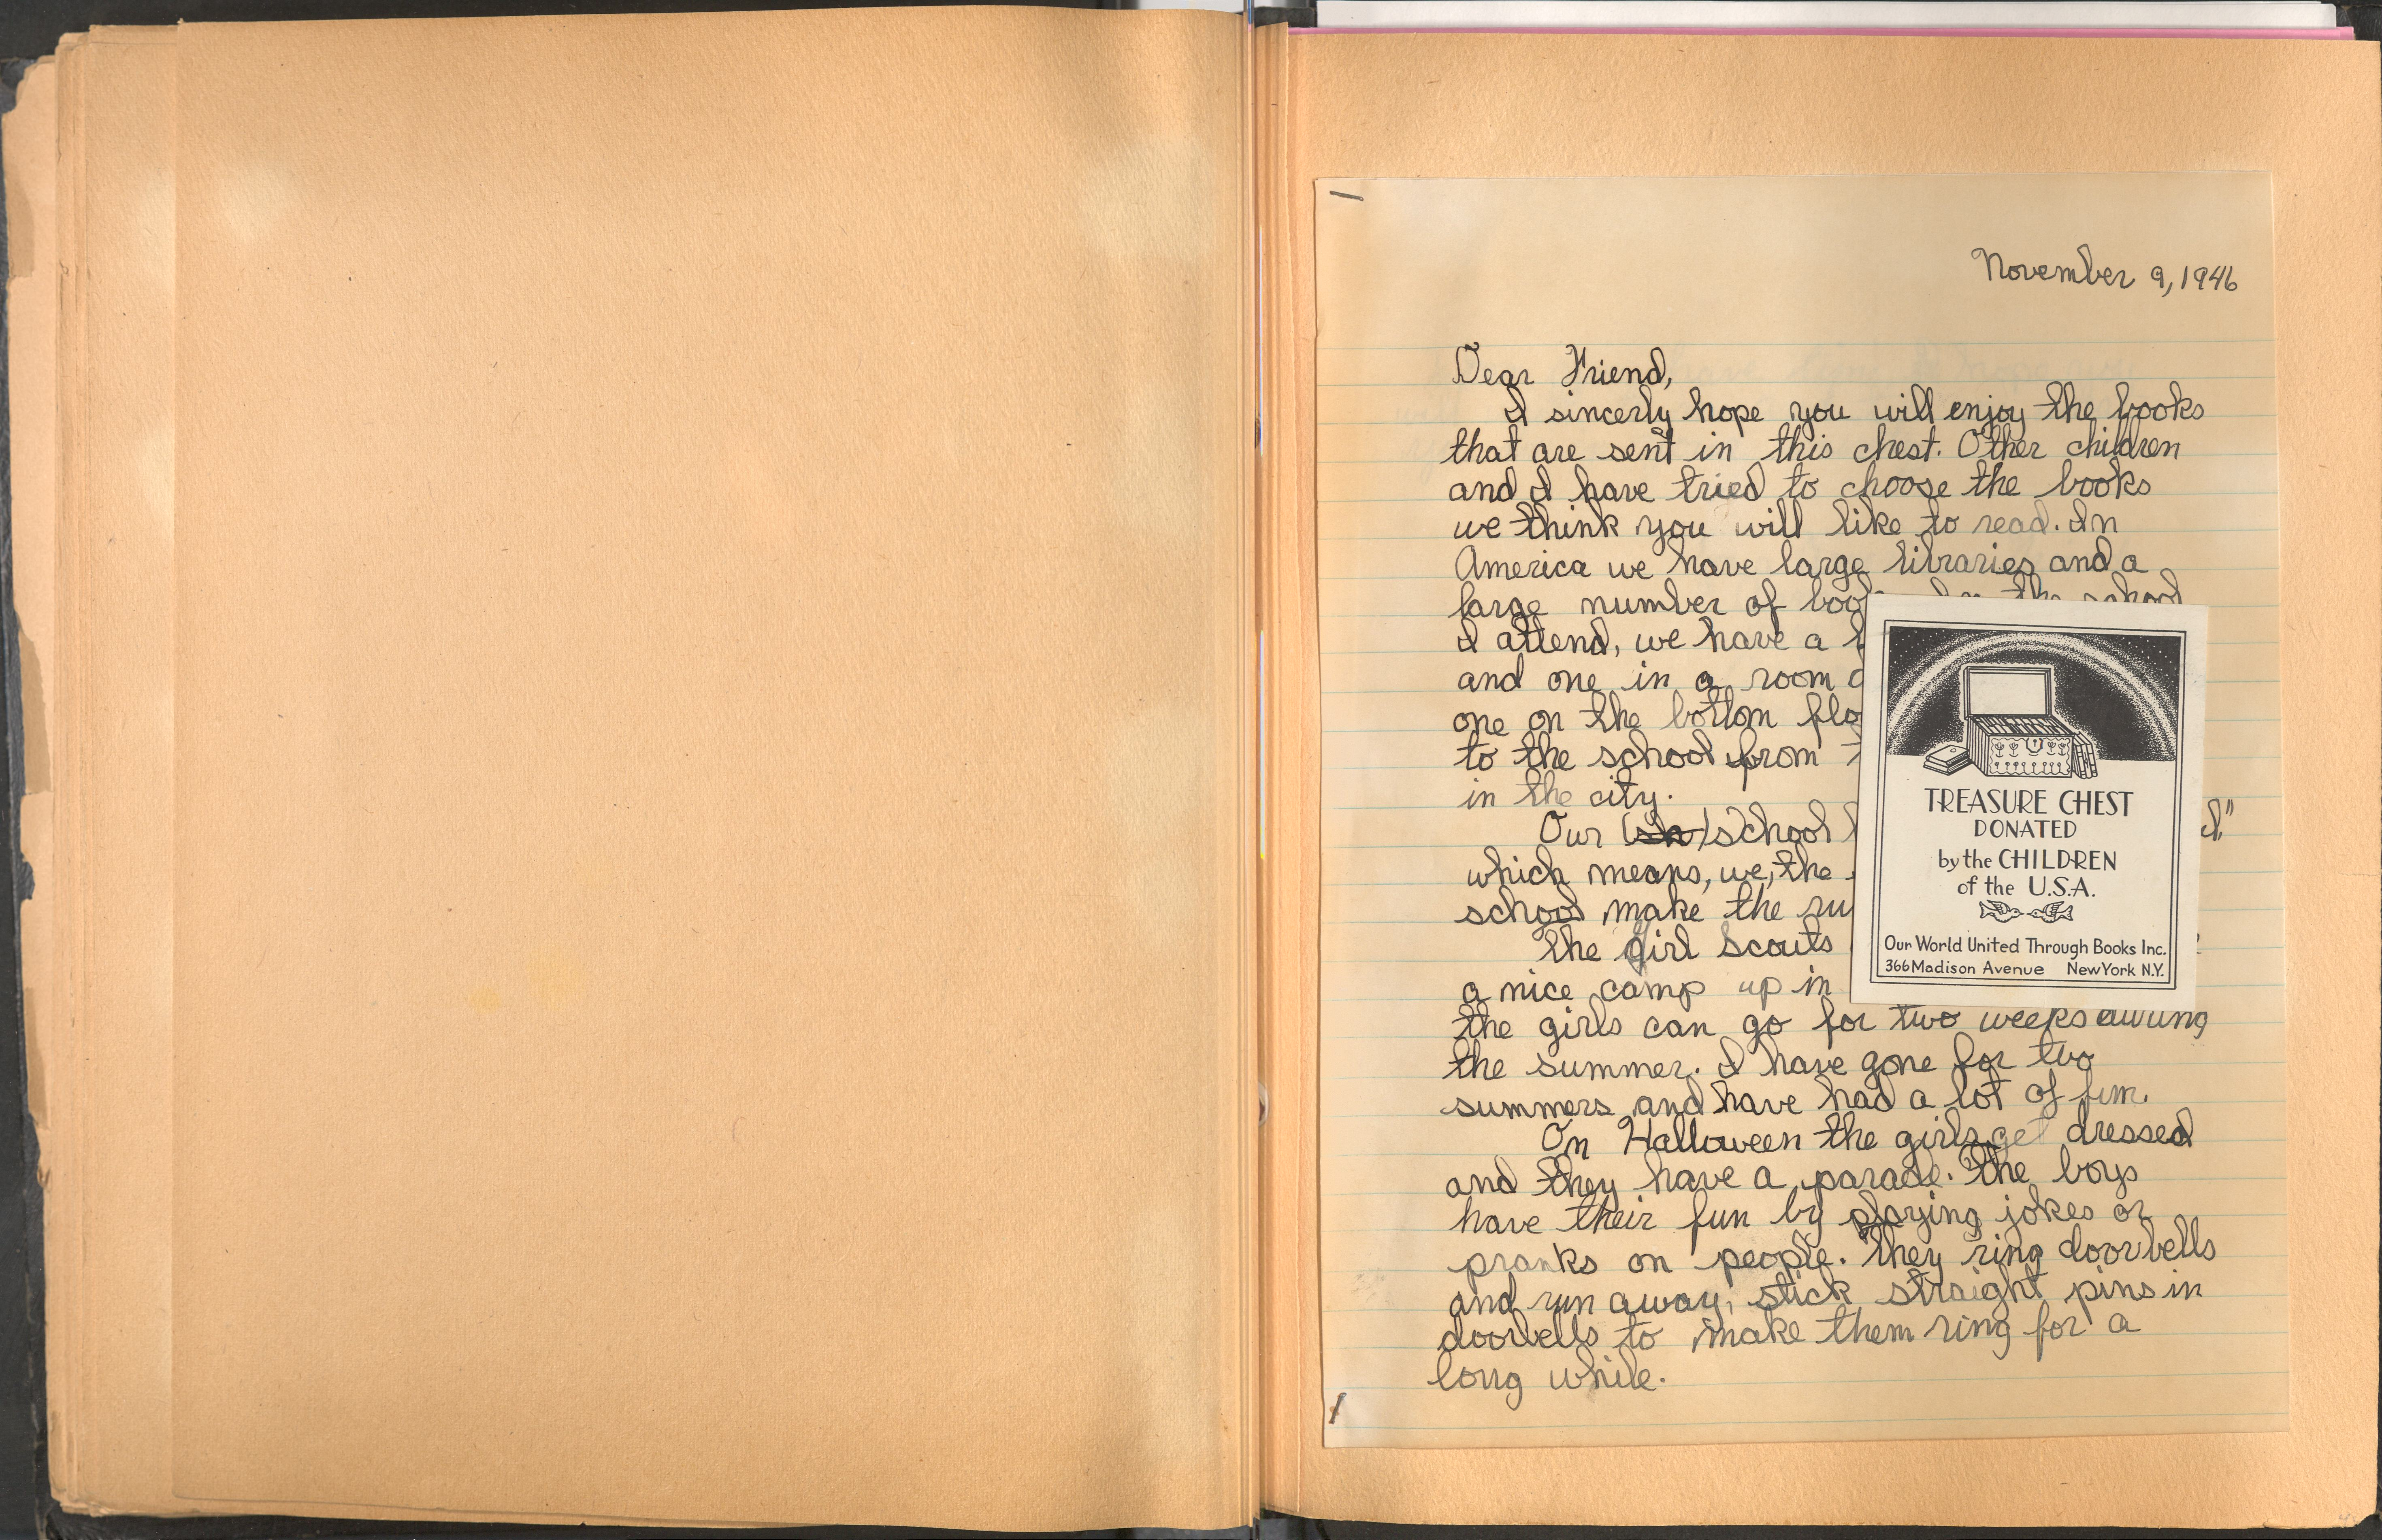 November 9, 1946
Dear Friend,
I sincerly hope you will enjoy the books
that are sent in this chest. Other children
and I have tried to choose the books
we think you will like to read. In
America we have large libraries and a
large number of In the school
I attend, we have a
and one in a room
one on the bottom
to the school from
in the city.
Our (sh) school
which means, we, the
school make the
The girl scouts
a nice camp up in
the girls can go for two weeks during
the summer. I have gone for two
summers and have had a lot of fun.
On Halloween the girls get dressed
and they have a parade. The boys
have their fun by playing jokes or
pranks on people. They ring doorbells
and run away, stick straight pins in
doorbells to make them ring for a
long while.
TREASURE CHEST
DONATED
by the CHILDREN
of the U.S.A.
Our World United Through Books Inc.
366 Madison Avenue New York N.Y.